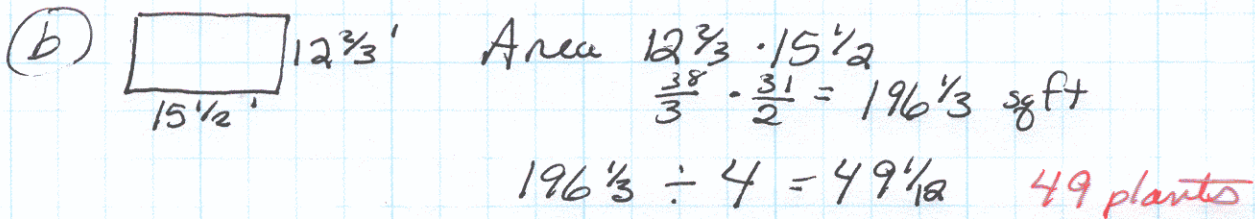 (b) 12 2/3 ' Area 12 2/3 · 15 1/2
15 1/2 ' 38/3 · 31/2 = 196 1/3 sq ft
196 1/3 ÷ 4 = 49 1/12 49 plants